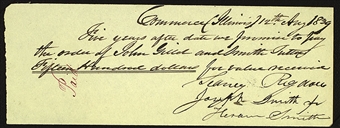 Commerce (Illinois) 12th Aug 1839
Five years after date we promise to pay
the order of John Gillet and Smith
Fifteen Hundred dollars for value received
Sidney Rigdon
Joseph Smith Jr
Hiram Smith